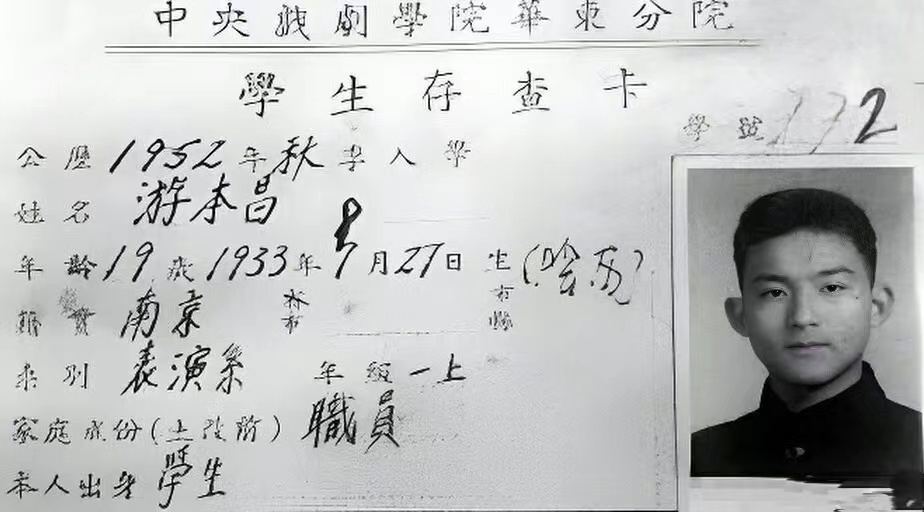 中央戏劇學院華東分院
學生存查卡
學號 172
公歷1952年秋季入學
姓名 游本昌
年齡19歲1933年8月27日生(陰历)
籍貫 南京 市 市縣
系別 表演系 年級 一上
家庭成份(土改前) 職員
本人出身 學生